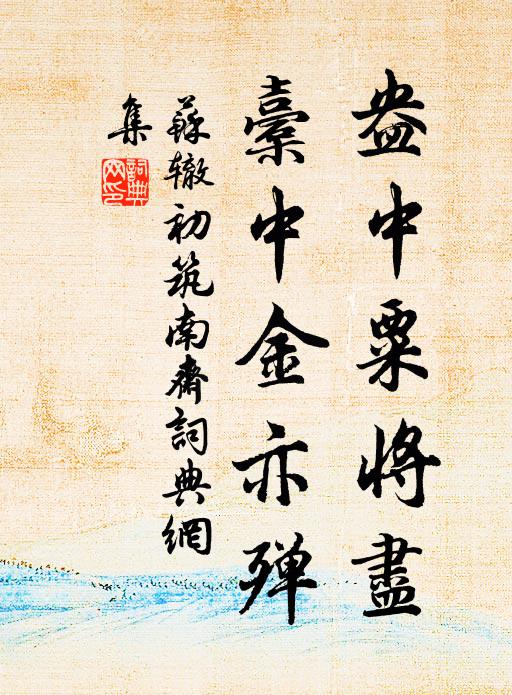 盎中粟將盡
橐中金亦殫
蘇辙初筑南齋詞典網
集
詞典
网印